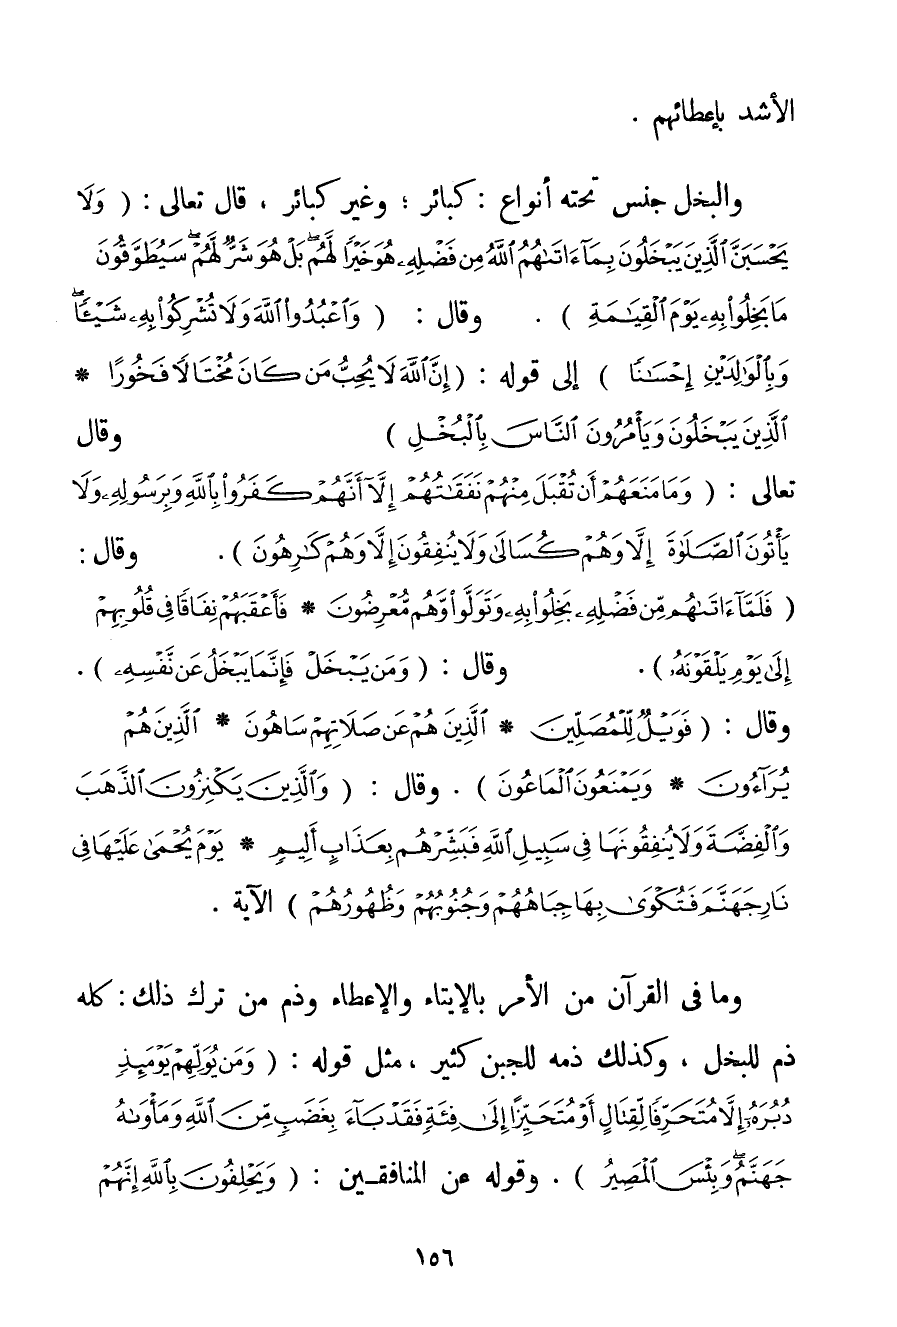 الأشد بإعطائهم .
والبخل جنس تحته أنواع : كبائر ؛ وغير كبائر ، قال تعالى : ( وَلَا
يَحْسَبَنَّ ٱلَّذِينَ يَبْخَلُونَ بِمَآ ءَاتَىٰهُمُ ٱللَّهُ مِن فَضْلِهِۦ هُوَ خَيْرًا لَّهُم ۖ بَلْ هُوَ شَرٌّ لَّهُمْ ۖ سَيُطَوَّقُونَ
مَا بَخِلُوا۟ بِهِۦ يَوْمَ ٱلْقِيَـٰمَةِ ) . وقال : ( وَٱعْبُدُوا۟ ٱللَّهَ وَلَا تُشْرِكُوا۟ بِهِۦ شَيْـًٔا ۖ
وَبِٱلْوَٰلِدَيْنِ إِحْسَـٰنًا ) إلى قوله : ( إِنَّ ٱللَّهَ لَا يُحِبُّ مَن كَانَ مُخْتَالًا فَخُورًا *
ٱلَّذِينَ يَبْخَلُونَ وَيَأْمُرُونَ ٱلنَّاسَ بِٱلْبُخْلِ ) وقال
تعالى : ( وَمَا مَنَعَهُمْ أَن تُقْبَلَ مِنْهُمْ نَفَقَـٰتُهُمْ إِلَّآ أَنَّهُمْ كَفَرُوا۟ بِٱللَّهِ وَبِرَسُولِهِۦ وَلَا
يَأْتُونَ ٱلصَّلَوٰةَ إِلَّا وَهُمْ كُسَالَىٰ وَلَا يُنفِقُونَ إِلَّا وَهُمْ كَـٰرِهُونَ ) . وقال :
( فَلَمَّآ ءَاتَىٰهُم مِّن فَضْلِهِۦ بَخِلُوا۟ بِهِۦ وَتَوَلَّوا۟ وَّهُم مُّعْرِضُونَ * فَأَعْقَبَهُمْ نِفَاقًا فِى قُلُوبِهِمْ
إِلَىٰ يَوْمِ يَلْقَوْنَهُۥ ) . وقال : ( وَمَن يَبْخَلْ فَإِنَّمَا يَبْخَلُ عَن نَّفْسِهِۦ ) .
وقال : ( فَوَيْلٌ لِّلْمُصَلِّينَ * ٱلَّذِينَ هُمْ عَن صَلَاتِهِمْ سَاهُونَ * ٱلَّذِينَ هُمْ
يُرَآءُونَ * وَيَمْنَعُونَ ٱلْمَاعُونَ ) . وقال : ( وَٱلَّذِينَ يَكْنِزُونَ ٱلذَّهَبَ
وَٱلْفِضَّةَ وَلَا يُنفِقُونَهَا فِى سَبِيلِ ٱللَّهِ فَبَشِّرْهُم بِعَذَابٍ أَلِيمٍ * يَوْمَ يُحْمَىٰ عَلَيْهَا فِى
نَارِ جَهَنَّمَ فَتُكْوَىٰ بِهَا جِبَاهُهُمْ وَجُنُوبُهُمْ وَظُهُورُهُمْ ) الآية .
وما فى القرآن من الأمر بالإيتاء والإعطاء وذم من ترك ذلك : كله
ذم للبخل ، وكذلك ذمه للجبن كثير ، مثل قوله : ( وَمَن يُوَلِّهِمْ يَوْمَئِذٍ
دُبُرَهُۥٓ إِلَّا مُتَحَرِّفًا لِّقِتَالٍ أَوْ مُتَحَيِّزًا إِلَىٰ فِئَةٍ فَقَدْ بَآءَ بِغَضَبٍ مِّنَ ٱللَّهِ وَمَأْوَىٰهُ
جَهَنَّمُ ۖ وَبِئْسَ ٱلْمَصِيرُ ) . وقوله عن المنافقين : ( وَيَحْلِفُونَ بِٱللَّهِ إِنَّهُمْ
١٥٦